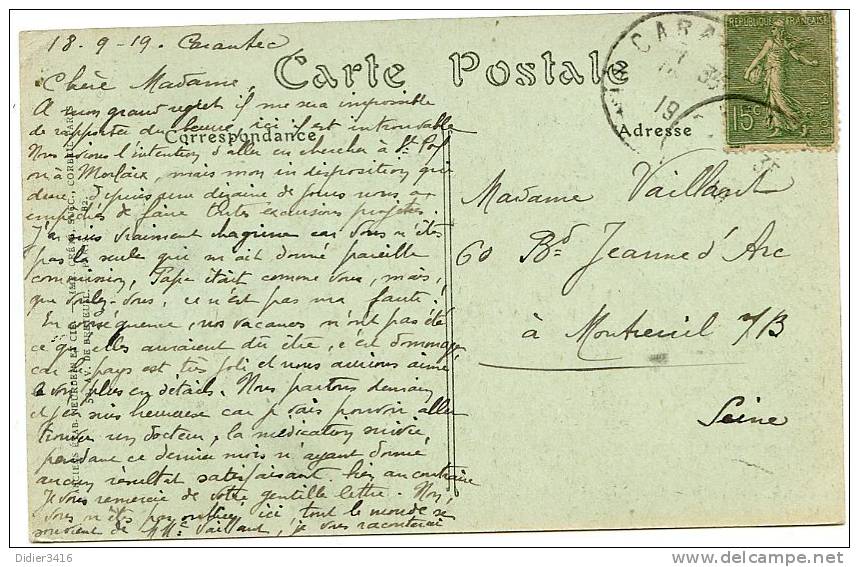 18-9-19. Carantec
Carte Postale
Correspondance
Adresse
REPUBLIQUE FRANÇAISE
15c
POSTES
CARA
19
Chère Madame,
A mon grand regret il me sera impossible
de rapporter du beurre, ici il est introuvable
Nous avions l'intention d'aller en chercher à St Pol
ou à Morlaix, mais mon indisposition qui
dure depuis une dizaine de jours nous a
empêchés de faire toutes excursions projetées.
J'ai suis vraiment chagrinée car vous n'êtes
pas la seule qui m'ait donné pareille
commission, Papa était comme vous, mais,
que voulez-vous, ce n'est pas ma faute!
En conséquence, nos vacances n'ont pas été
ce qu'elles auraient dû être, c'est dommage,
car le pays est très joli et nous aurions aimé
le voir plus en détails. Nous partons demain
et j'en suis heureuse car je vais pouvoir aller
trouver un docteur, la médication suivie
pendant ce dernier mois n'ayant donné
aucun résultat satisfaisant bien au contraire
Je vous remercie de votre gentille lettre. Non,
vous n'êtes pas oubliée, ici tout le monde se
souvient de Mme Vaillant, je vous raconterai
Madame Vaillant
60 Bd Jeanne d'Arc
à Montreuil s/B
Seine
ANCIENS ETAB. NEURDEIN ET CIE. — IMP. CRÉTÉ, SUCC., CORBEIL-PARIS
52, AV. DE BRETEUIL
Didier3416
delcampe.net